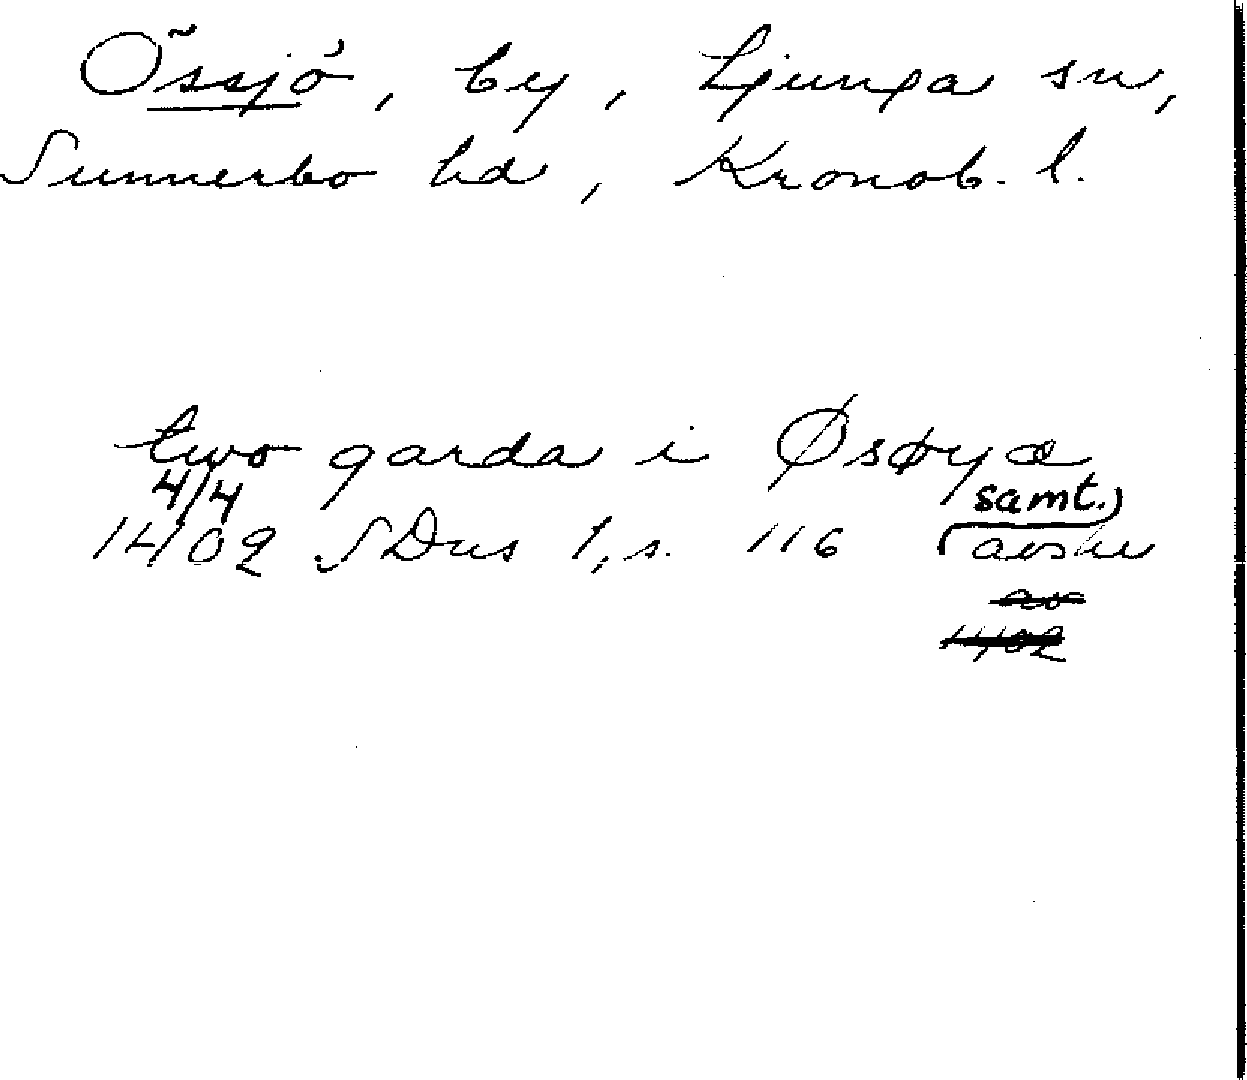 Össjö, by, Ljunga sn,
Sunnerbo hd, Kronob. l.
two garda i Øsøyæ
4/4
1402 SDns 1, s. 116 (samt.) avskr
av
1402